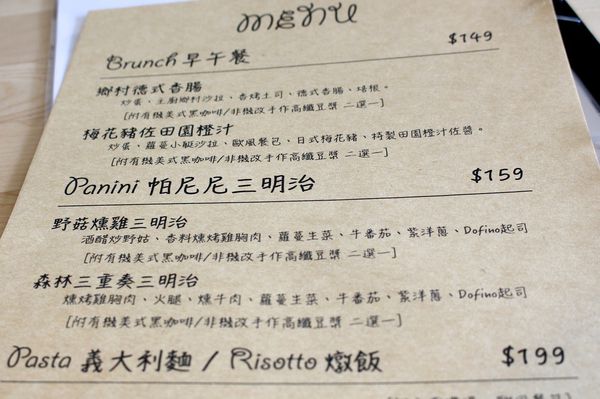 MENU
Brunch 早午餐 $149
鄉村德式香腸
炒蛋、主廚鄉村沙拉、香烤土司、德式香腸、培根。
[附有機美式黑咖啡/非機改手作高纖豆漿 二選一]
梅花豬佐田園橙汁
炒蛋、蘿蔓小艇沙拉、歐風餐包、日式梅花豬、特製田園橙汁佐醬。
[附有機美式黑咖啡/非機改手作高纖豆漿 二選一]
Panini 帕尼尼三明治 $159
野菇燻雞三明治
酒醋炒野菇、香料燻烤雞胸肉、蘿蔓生菜、牛番茄、紫洋蔥、Dofino起司
[附有機美式黑咖啡/非機改手作高纖豆漿 二選一]
森林三重奏三明治
燻烤雞胸肉、火腿、燻牛肉、蘿蔓生菜、牛番茄、紫洋蔥、Dofino起司
[附有機美式黑咖啡/非機改手作高纖豆漿 二選一]
Pasta 義大利麵 / Risotto 燉飯 $199